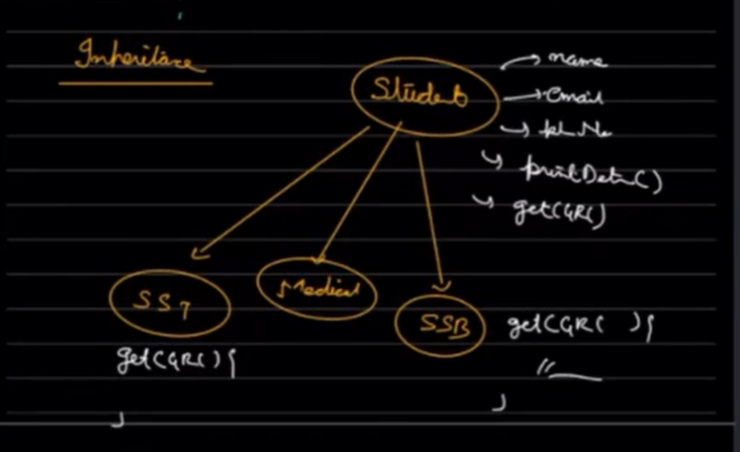 Inheritance
Student
name
Email
ph No
printDetail()
getCGPA()
SST
Medical
SSB
getCGPA(){
}
getCGPA( ){
}